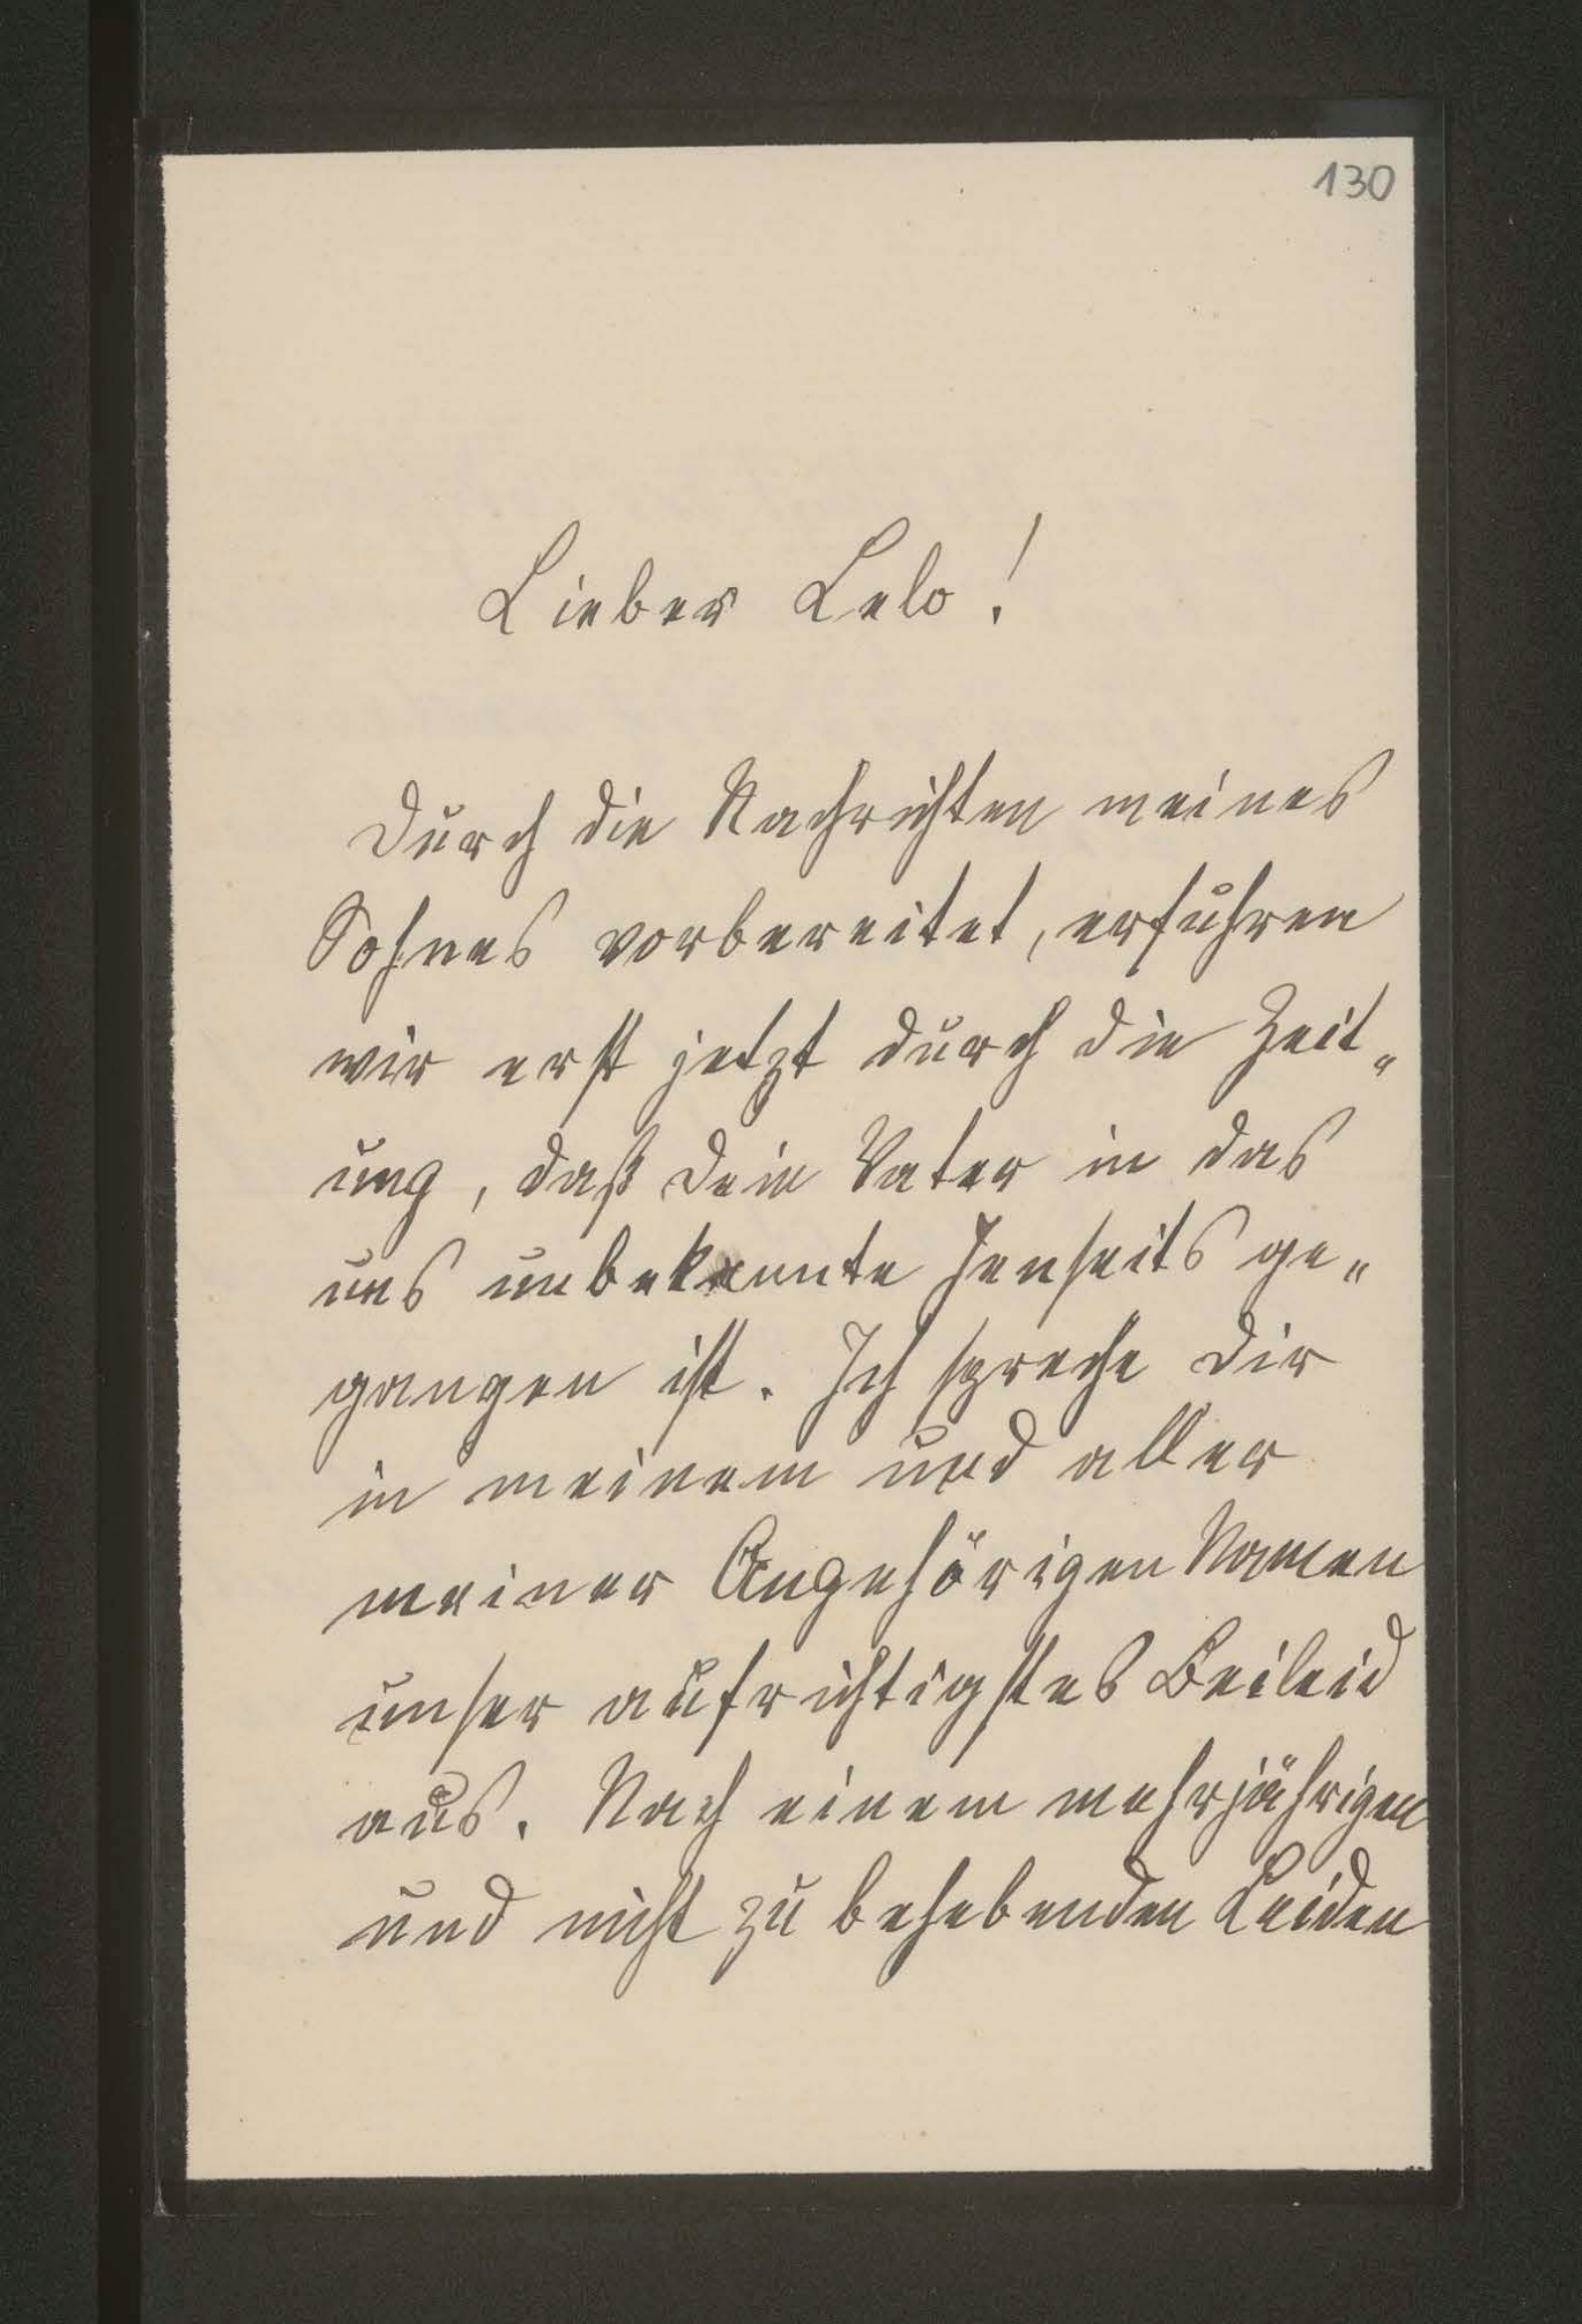 130
Lieber Lelo!
Durch die Nachrichten meines
Sohnes vorbereitet, erfuhren
wir erst jetzt durch die Zeit„
ung, daß Dein Vater in das
uns unbekannte Jenseits ge„
gangen ist. Ich spreche Dir
in meinem und aller
meiner Angehörigen Namen
unser aufrichtigstes Beileid
aus. Nach einem mehrjährigen
und nicht zu behebenden Leiden